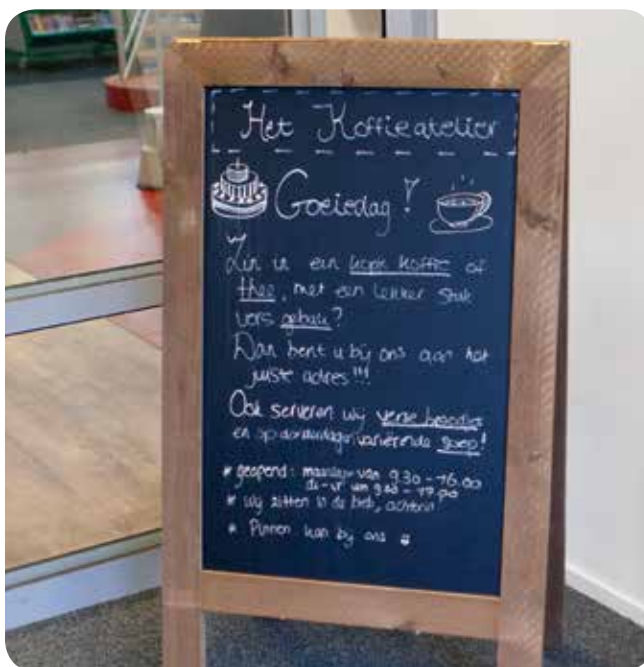 Het Koffieatelier
Goeiedag!
Zin in een kopje koffie of
thee, met een lekker stuk
vers gebak?
Dan bent u bij ons aan het
juiste adres!!!
Ook serveren wij verse broodjes
en op donderdagen variërende soep!
* geopend: maandag van 9.30-16.00
di-vr van 9.00-17.00
* wij zitten in de bieb, achterin
* Pinnen kan bij ons